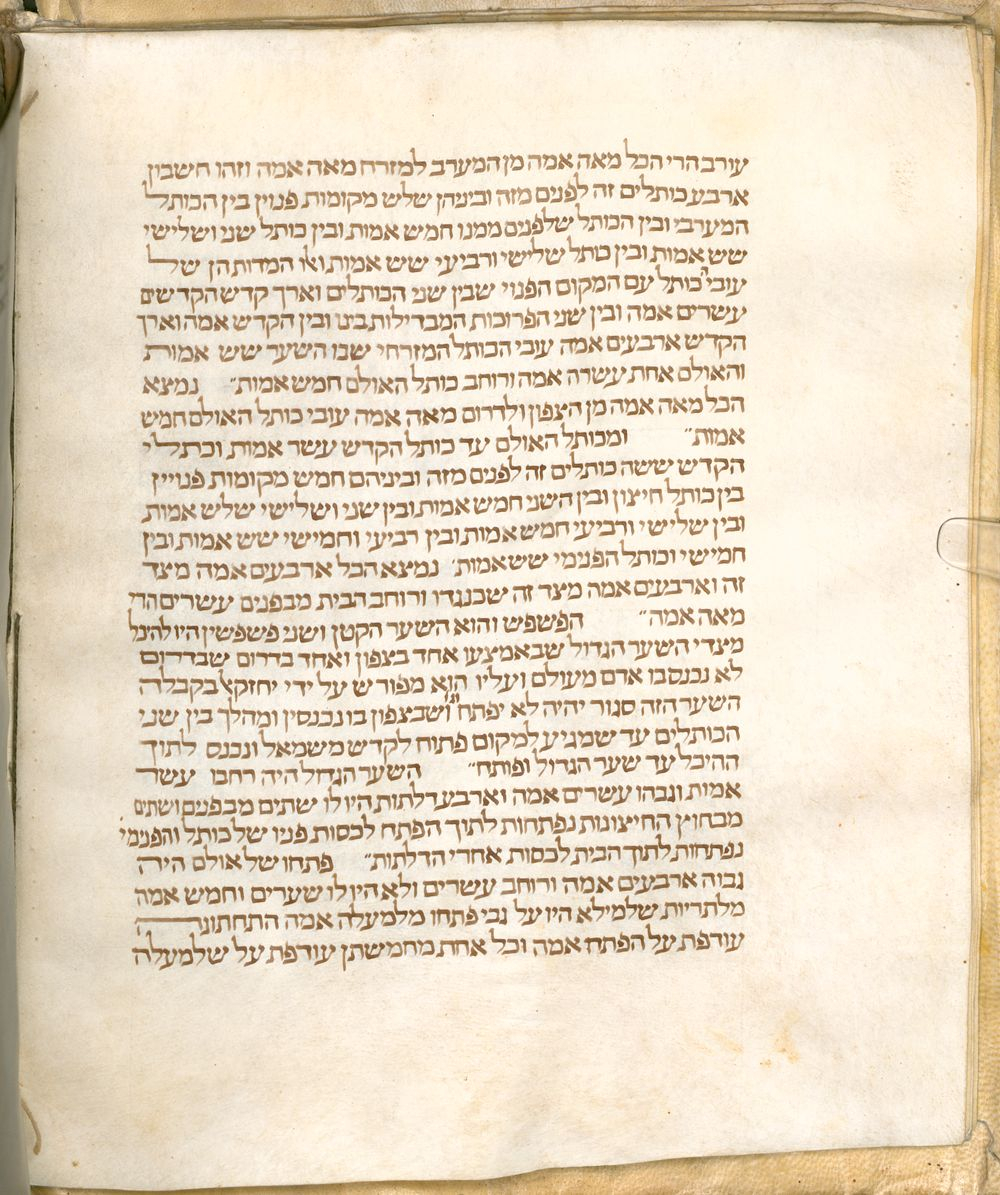 עורב הרי הכל מאה אמה מן המערב למזרח מאה אמה וזהו חשבון
ארבע כותלים זה לפנים מזה וביניהן שלש מקומות פנוין בין הכותל
המערבי ובין הכותל שלפנים ממנו חמש אמות ובין כותל שני ושלישי
שש אמות ובין כותל שלישי ורביעי שש אמות ואו המדות הן של
עובי הכותל עם המקום הפנוי שבין שני הכותלים וארך קדש הקדשים
עשרים אמה ובין שני הפרוכות המבדילות בינו ובין הקדש אמה וארך
הקדש ארבעים אמה עובי הכותל המזרחי שבו השער שש אמות
והאולם אחת עשרה אמה ורוחב כותל האולם חמש אמות״ נמצא
הכל מאה אמה מן הצפון ולדרום מאה אמה עובי כותל האולם חמש
אמות״ ומכותל האולם עד כותל הקדש עשר אמות וכתלי
הקדש ששה כותלים זה לפנים מזה וביניהם חמש מקומות פנויין
בין כותל חיצון ובין השני חמש אמות ובין שני ושלישי שלש אמות
ובין שלישי ורביעי חמש אמות ובין רביעי וחמישי שש אמות ובין
חמישי וכותל הפנימי שש אמות׳ נמצא הכל ארבעים אמה מצד
זה וארבעים אמה מצד זה שכנגדו ורוחב הבית מבפנים עשרים הרי
מאה אמה״ הפשפש והוא השער הקטן ושני פשפשין היו להיכל
מצדי השער הגדול שבאמצעו אחד בצפון ואחד בדרום שבדרום
לא נכנס בו אדם מעולם ועליו הוא מפורש על ידי יחזקאל בקבלה
השער הזה סגור יהיה לא יפתח וגו׳ ושבצפון בו נכנסין ומהלך בין שני
הכותלים עד שמגיע למקום פתוח לקדש משמאל ונכנס לתוך
ההיכל עד שער הגדול ופותח״ השער הגדול היה רחבו עשר
אמות וגבהו עשרים אמה וארבע דלתות היו לו שתים מבפנים ושתים
מבחוץ החיצונות נפתחות לתוך הפתח לכסות פניו של כותל והפנימי׳
נפתחות לתוך הבית לכסות אחרי הדלתות״ פתחו של אולם היה
גבוה ארבעים אמה ורוחב עשרים ולא היו לו שערים וחמש אמה
מלתריות של מילא היו על גבי פתחו מלמעלה אמה התחתונה
עודפת על הפתח אמה וכל אחת מחמשתן עודפת על שלמעלה